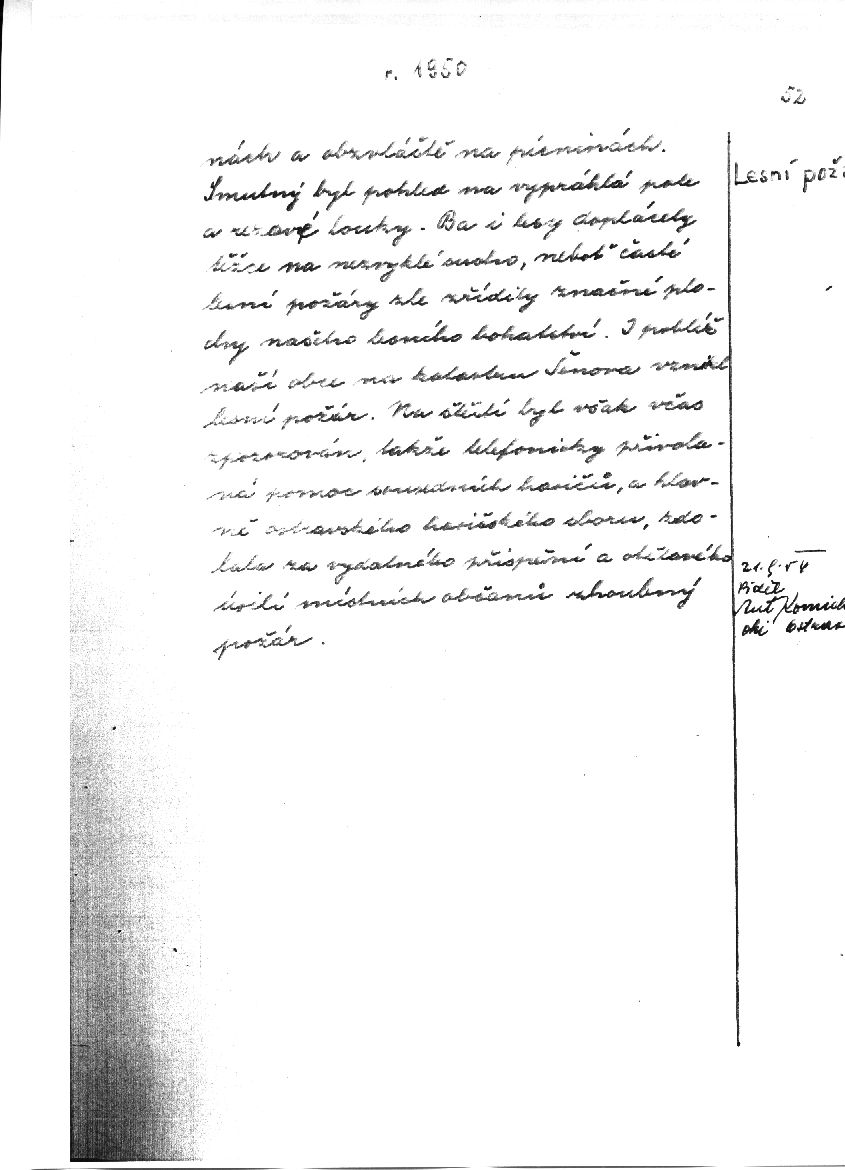 r. 1950
52
nách a obzvláště na pícninách.
Smutný byl pohled na vyprahlá pole
a rezavé louky. Ba i lesy doplácely
těžce na nezvyklé sucho, neboť časté
lesní požáry zle zřídily značné plo-
chy našeho lesního bohatství. I poblíž
naší obce na katastru Šenova vznikl
lesní požár. Na štěstí byl však včas
zpozorován, takže telefonicky přivola-
ná pomoc sousedních hasičů, a hlav-
ně ostravského hasičského sboru, zdo-
lala za vydatného přispění a obětavého
úsilí místních občanů zhoubný
požár.
Lesní poži
21.9.54
Viděl